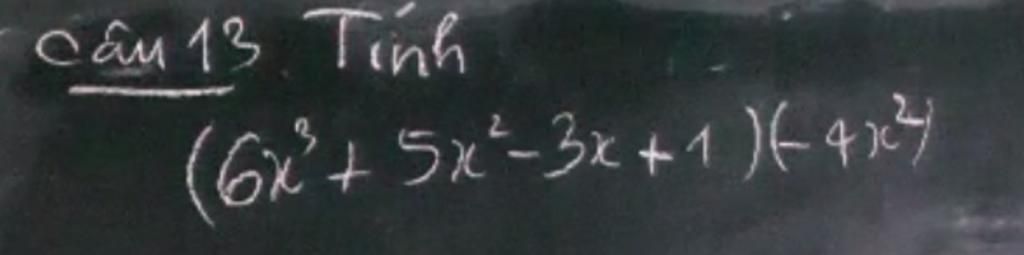 Câu 13. Tính
(6x³ + 5x² - 3x + 1)(-4x²)